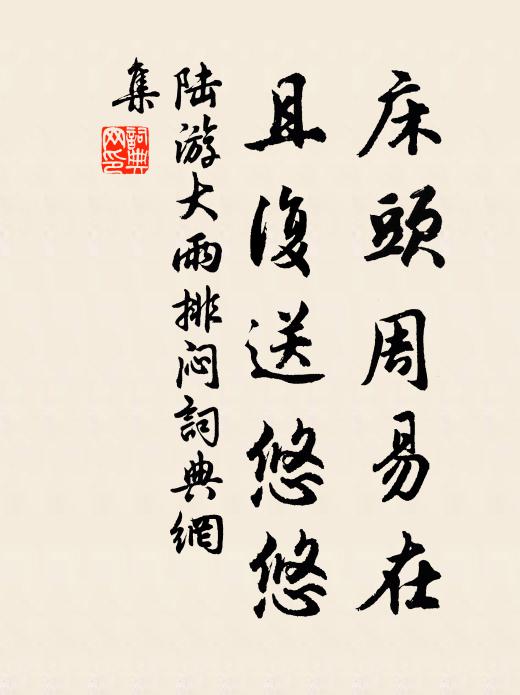 床頭周易在
且復送悠悠
陆游大雨排闷詞典網
集
詞典
网印